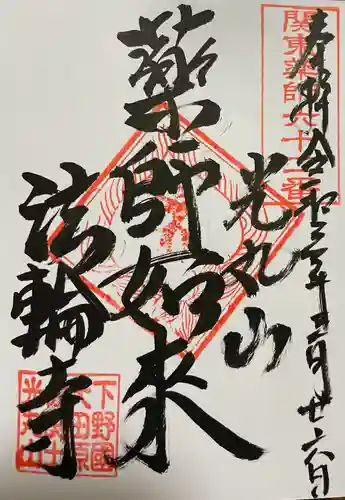 関東薬師六十二番
奉拜 令和三年三月廿六日
光丸山
薬師如来
法輪寺
下野國
大田原
光丸山